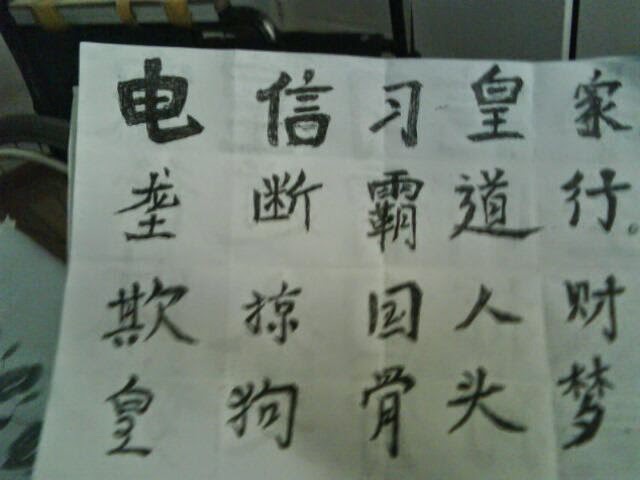 电信习皇家
垄断霸道行。
欺掠国人财
皇狗骨头梦